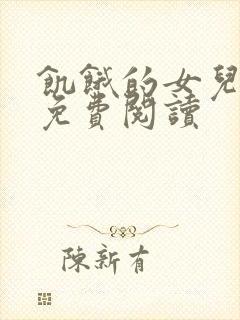 飢餓的女兒
免費閱讀
陳新有